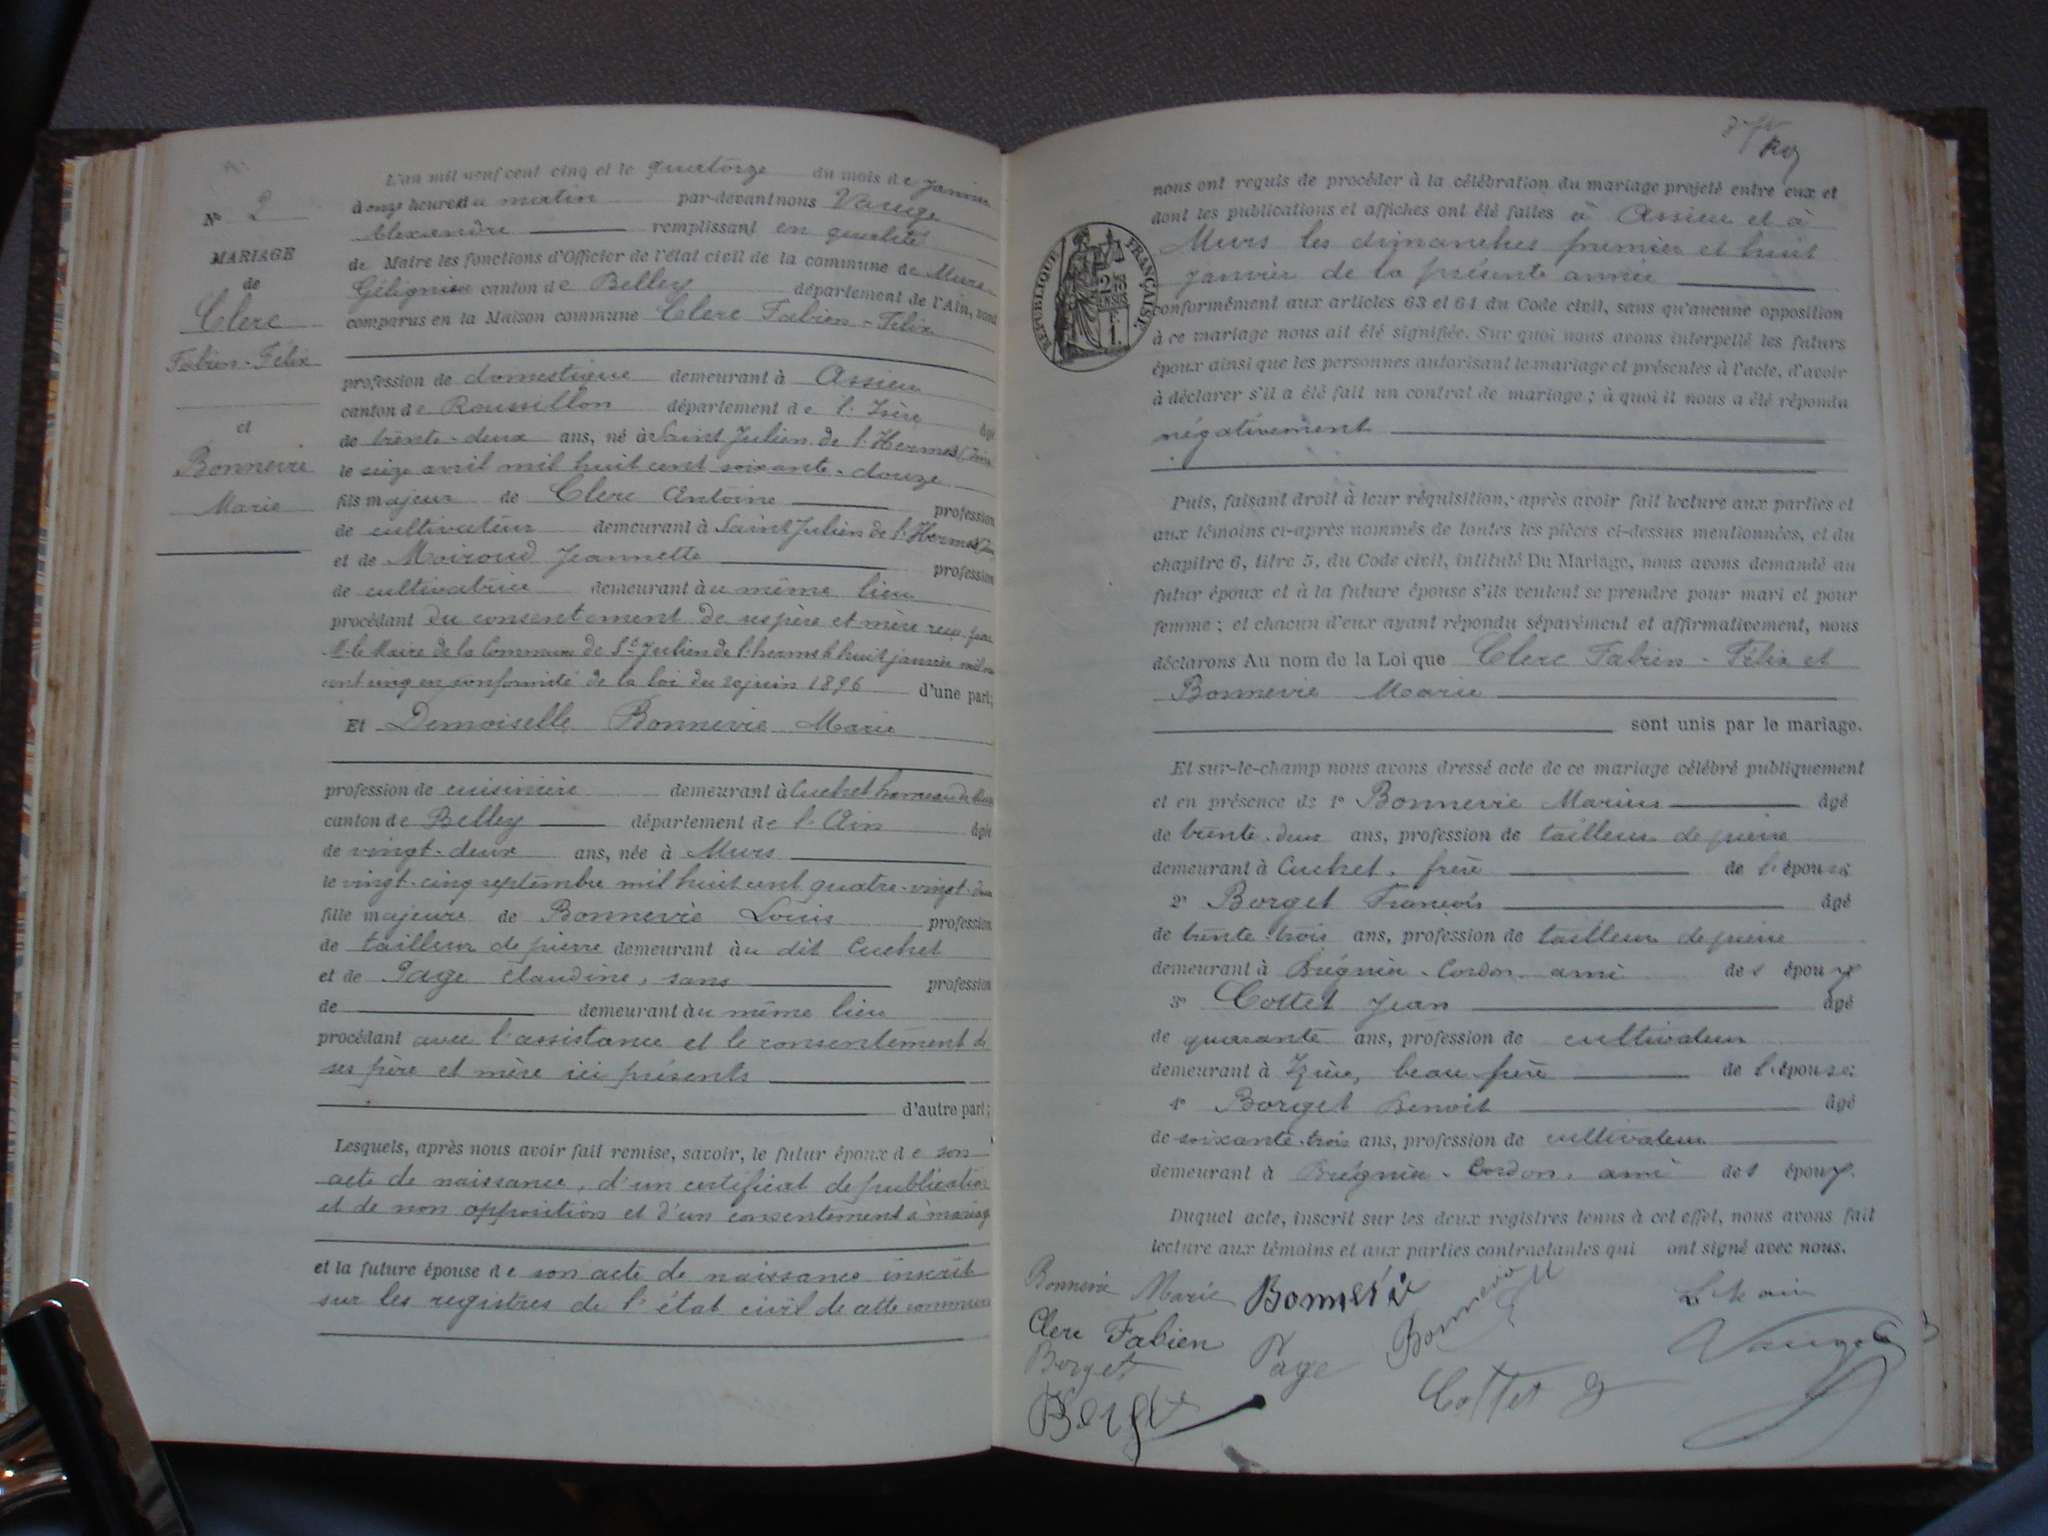 N° 2
MARIAGE
de
Clerc
Fabien-Félix
et
Bonnevie
Marie
L'an mil neuf cent cinq et le quatorze du mois de Janvier
à onze heures du matin par-devant nous Vauge
Alexandre remplissant en qualité
de Maire les fonctions d'Officier de l'état civil de la commune de Murs
Gélignieu canton de Belley département de l'Ain, sont
comparus en la Maison commune Clerc Fabien-Félix
profession de domestique demeurant à Assieu
canton de Roussillon département de l'Isère âgé
de trente-deux ans, né à Saint Julien de l'Herms (Isère
le seize avril mil huit cent soixante-douze
fils majeur de Clerc Antoine profession
de cultivateur demeurant à Saint Julien de l'Herms
et de Moiroud Jeannette profession
de cultivatrice demeurant au même lieu
procédant du consentement de ses père et mère reçu par
M. le Maire de la Commune de St Julien de l'herms le huit janvier mil neuf
cent cinq en conformité de la loi du 20 juin 1896 d'une part;
Et Demoiselle Bonnevie Marie
profession de cuisinière demeurant à Cuchet hameau de Murs
canton de Belley département de l'Ain âgée
de vingt-deux ans, née à Murs
le vingt-cinq septembre mil huit cent quatre-vingt-deux
fille majeure de Bonnevie Louis profession
de tailleur de pierre demeurant au dit Cuchet
et de Page Claudine, sans profession
de demeurant au même lieu
procédant avec l'assistance et le consentement de
ses père et mère ici présents
d'autre part;
Lesquels, après nous avoir fait remise, savoir, le futur époux de son
acte de naissance, d'un certificat de publication
et de non opposition et d'un consentement à mariage
et la future épouse de son acte de naissance inscrit
sur les registres de l'état civil de cette commune
nous ont requis de procéder à la célébration du mariage projeté entre eux et
dont les publications et affiches ont été faites à Assieu et à
Murs les dimanches premier et huit
janvier de la présente année
conformément aux articles 63 et 64 du Code civil, sans qu'aucune opposition
à ce mariage nous ait été signifiée. Sur quoi nous avons interpellé les futurs
époux ainsi que les personnes autorisant le mariage et présentes à l'acte, d'avoir
à déclarer s'il a été fait un contrat de mariage; à quoi il nous a été répondu
négativement
RÉPUBLIQUE FRANÇAISE
Puis, faisant droit à leur réquisition, après avoir fait lecture aux parties et
aux témoins ci-après nommés de toutes les pièces ci-dessus mentionnées, et du
chapitre 6, titre 5, du Code civil, intitulé Du Mariage, nous avons demandé au
futur époux et à la future épouse s'ils veulent se prendre pour mari et pour
femme; et chacun d'eux ayant répondu séparément et affirmativement, nous
déclarons Au nom de la Loi que Clerc Fabien-Félix et
Bonnevie Marie
sont unis par le mariage.
Et sur-le-champ nous avons dressé acte de ce mariage célébré publiquement
et en présence de 1° Bonnevie Marius âgé
de trente-deux ans, profession de tailleur de pierre
demeurant à Cuchet, frère de l'épouse;
2° Borget François âgé
de trente-trois ans, profession de tailleur de pierre
demeurant à Brégnier-Cordon ami des époux
3° Cottet Jean âgé
de quarante ans, profession de cultivateur
demeurant à Izieu, beau frère de l'épouse;
4° Borget Benoit âgé
de soixante-trois ans, profession de cultivateur
demeurant à Brégnier-Cordon, ami des époux.
Duquel acte, inscrit sur les deux registres tenus à cet effet, nous avons fait
lecture aux témoins et aux parties contractantes qui ont signé avec nous.
Bonnevie Marie Bonnevie Bonnevie Le Maire
Clerc Fabien Page Vauge
Borget Cottet J
Borget